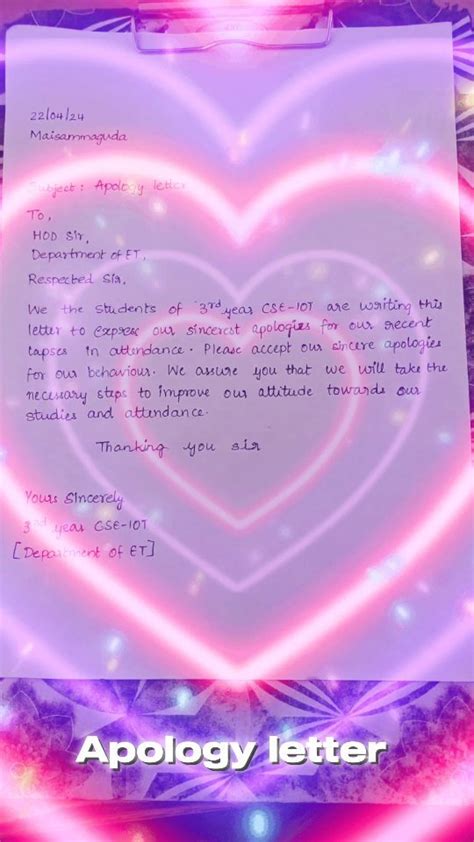 22/04/24
Maisammaguda
Subject: Apology letter
To,
HOD Sir,
Department of ET,
Respected Sir,
We the students of 3rd year CSE-IOT are writing this
letter to express our sincerest apologies for our recent
lapses in attendance. Please accept our sincere apologies
for our behaviour. We assure you that we will take the
necessary steps to improve our attitude towards our
studies and attendance.
Thanking you sir
Yours Sincerely
3rd year CSE-IOT
[Department of ET]
Apology letter